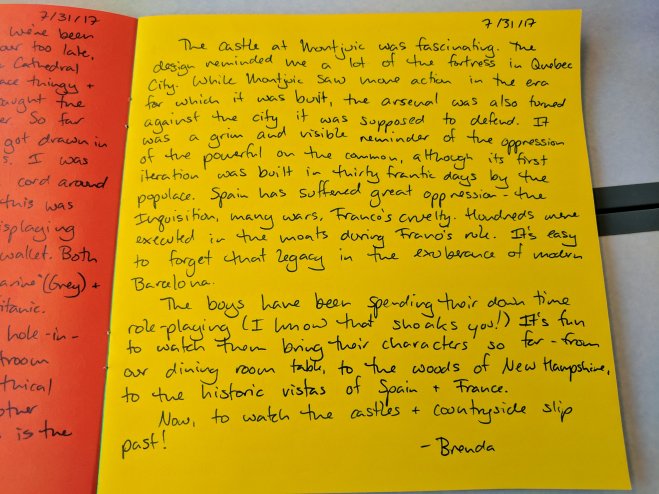 7/31/17
we've been
our too late,
Cathedral
ace thingy +
aught the
er So far
got drawn in
s. I was
cord around
this was
isplaying
wallet. Both
arine" (Grey) +
itanic.
hole-in-
troom
thical
other
is the
7/31/17
The castle at Montjuic was fascinating. The
design reminded me a lot of the fortress in Quebec
City. While Montjuic saw more action in the era
for which it was built, the arsenal was also turned
against the city it was supposed to defend. It
was a grim and visible reminder of the oppression
of the powerful on the common, although its first
iteration was built in thirty frantic days by the
populace. Spain has suffered great oppression - the
Inquisition, many wars, Franco's cruelty. Hundreds were
executed in the moats during Franco's rule. It's easy
to forget that legacy in the exuberance of modern
Barcelona.
The boys have been spending their down time
role-playing (I know that shocks you!) It's fun
to watch them bring their characters so far - from
our dining room table, to the woods of New Hampshire,
to the historic vistas of Spain + France.
Now, to watch the castles + countryside slip
past!
- Brenda